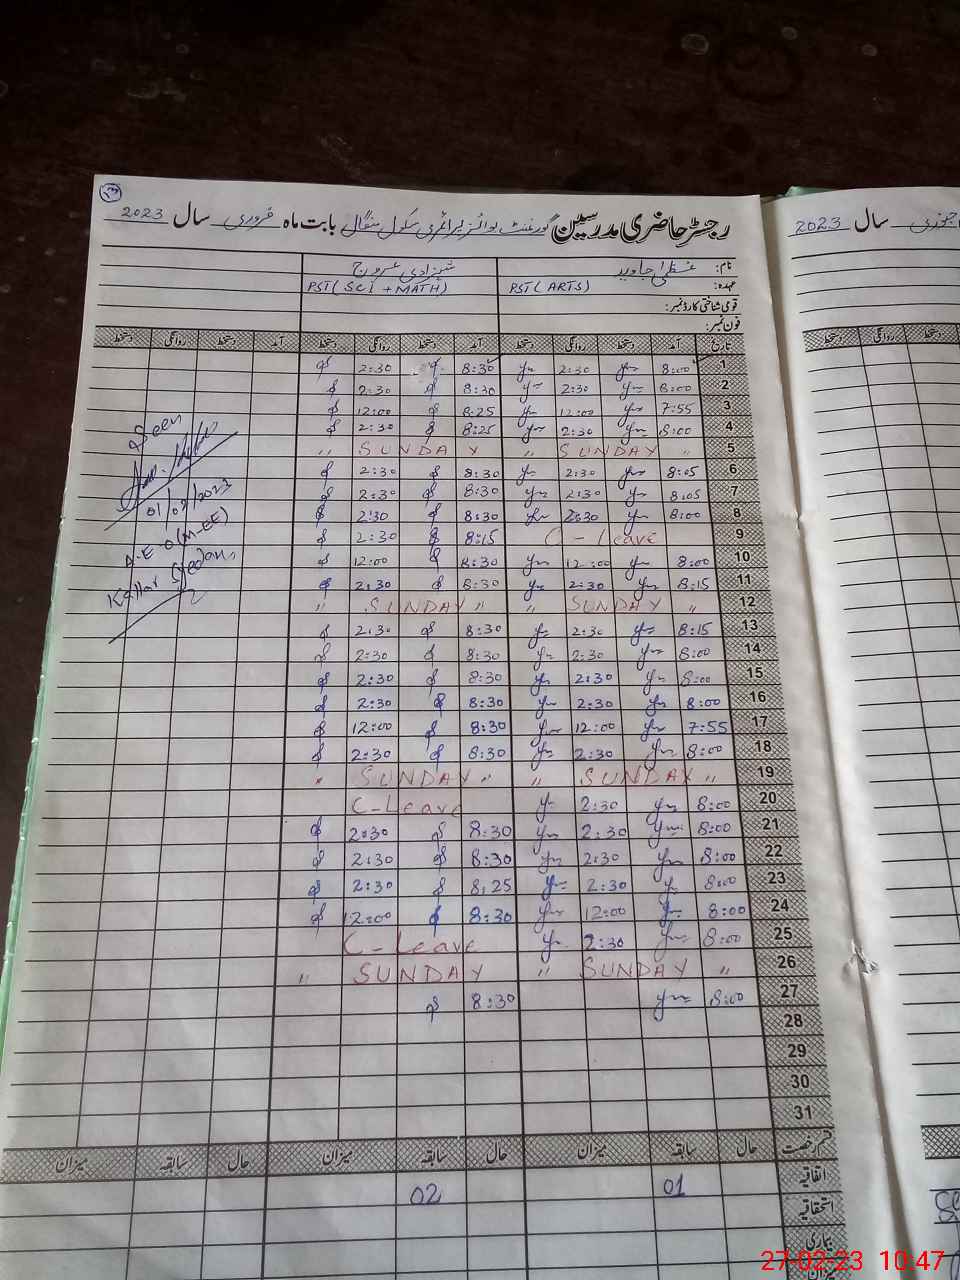 رجسٹر حاضری مدرسین گورنمنٹ بوائز پرائمری سکول منگال بابت ماہ فروری سال 2023
نام: عظمیٰ جاوید شہزادی عروج
عہدہ: PST (ARTS) PST (SCI + MATH)
قومی شناختی کارڈ نمبر:
فون نمبر:
تاریخ آمد دستخط روانگی دستخط آمد دستخط روانگی دستخط آمد دستخط روانگی دستخط
1 8:00 2:30 8:30 2:30
2 8:00 2:30 8:30 2:30
3 7:55 12:00 8:25 12:00
4 8:00 2:30 8:25 2:30
5 " SUNDAY " SUNDAY "
6 8:05 2:30 8:30 2:30
7 8:05 2:30 8:30 2:30
8 8:00 2:30 8:30 2:30
9 C-Leave 8:15 2:30
10 8:00 12:00 8:30 12:00
11 8:15 2:30 8:30 2:30
12 " SUNDAY " " SUNDAY "
13 8:15 2:30 8:30 2:30
14 8:00 2:30 8:30 2:30
15 8:00 2:30 8:30 2:30
16 8:00 2:30 8:30 2:30
17 7:55 12:00 8:30 12:00
18 8:00 2:30 8:30 2:30
19 " SUNDAY " " SUNDAY "
20 8:00 2:30 C-Leave
21 8:00 2:30 8:30 2:30
22 8:00 2:30 8:30 2:30
23 8:00 2:30 8:25 2:30
24 8:00 12:00 8:30 12:00
25 8:00 2:30 C-Leave
26 " SUNDAY " SUNDAY "
27 8:00 8:30
28
29
30
31
Seen
01/02/2023
A.E.O (M-EE)
Kallar Syedan
قسم رخصت حال سابقہ میزان حال سابقہ میزان حال سابقہ میزان
اتفاقیہ 01 02
استحقاقیہ
بیماری
میزان
جنوری سال 2023
دستخط روانگی دستخط
27-02-23 10:47